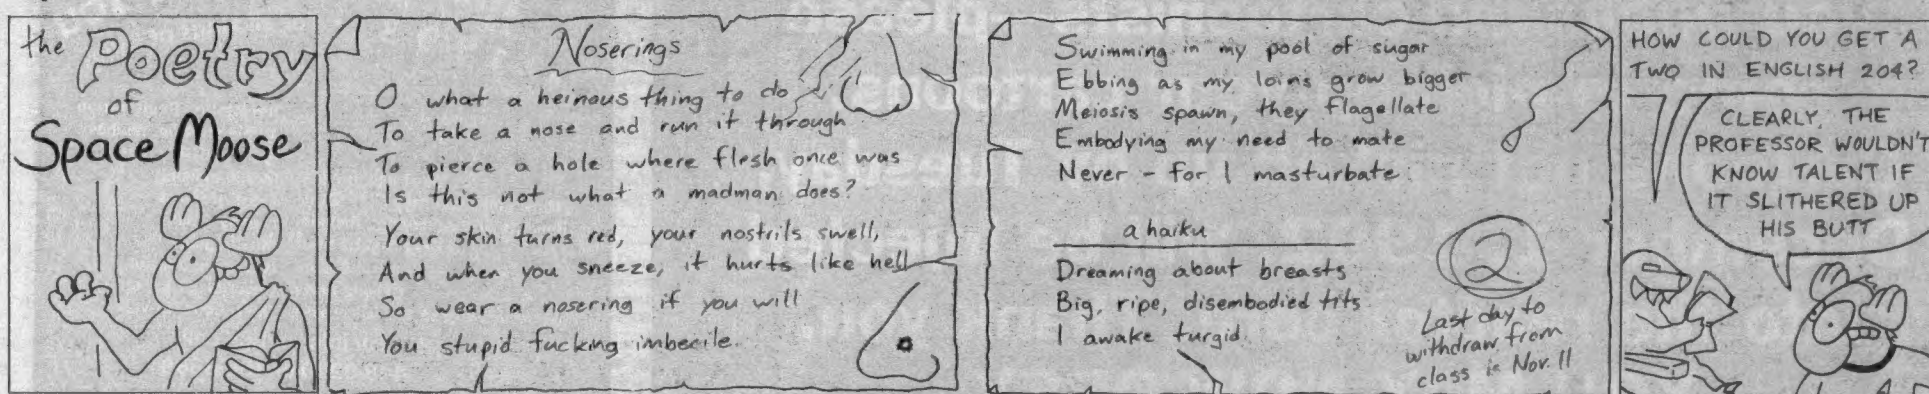 the Poetry
of
Space Moose
Noserings
O what a heinous thing to do
To take a nose and run it through
To pierce a hole where flesh once was
Is this not what a madman does?
Your skin turns red, your nostrils swell,
And when you sneeze, it hurts like hell
So wear a nosering if you will
You stupid fucking imbecile.
Swimming in my pool of sugar
Ebbing as my loins grow bigger
Meiosis spawn, they flagellate
Embodying my need to mate
Never - for I masturbate.
a haiku
Dreaming about breasts
Big, ripe, disembodied tits
I awake turgid.
2
Last day to
withdraw from
class is Nov. 11
HOW COULD YOU GET A
TWO IN ENGLISH 204?
CLEARLY, THE
PROFESSOR WOULDN'T
KNOW TALENT IF
IT SLITHERED UP
HIS BUTT